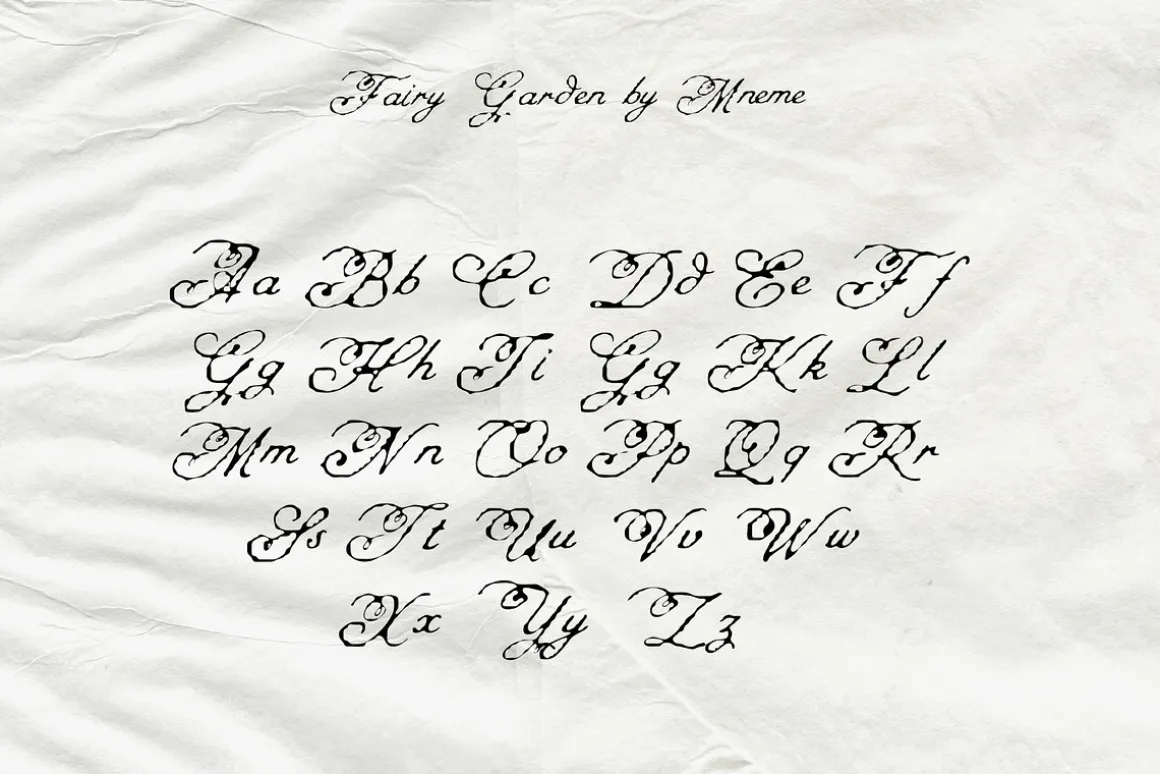 Fairy Garden by Mneme
Aa Bb Cc Dd Ee Ff
Gg Hh Ii Gg Kk Ll
Mm Nn Oo Pp Qq Rr
Ss Tt Uu Vv Ww
Xx Yy Zz